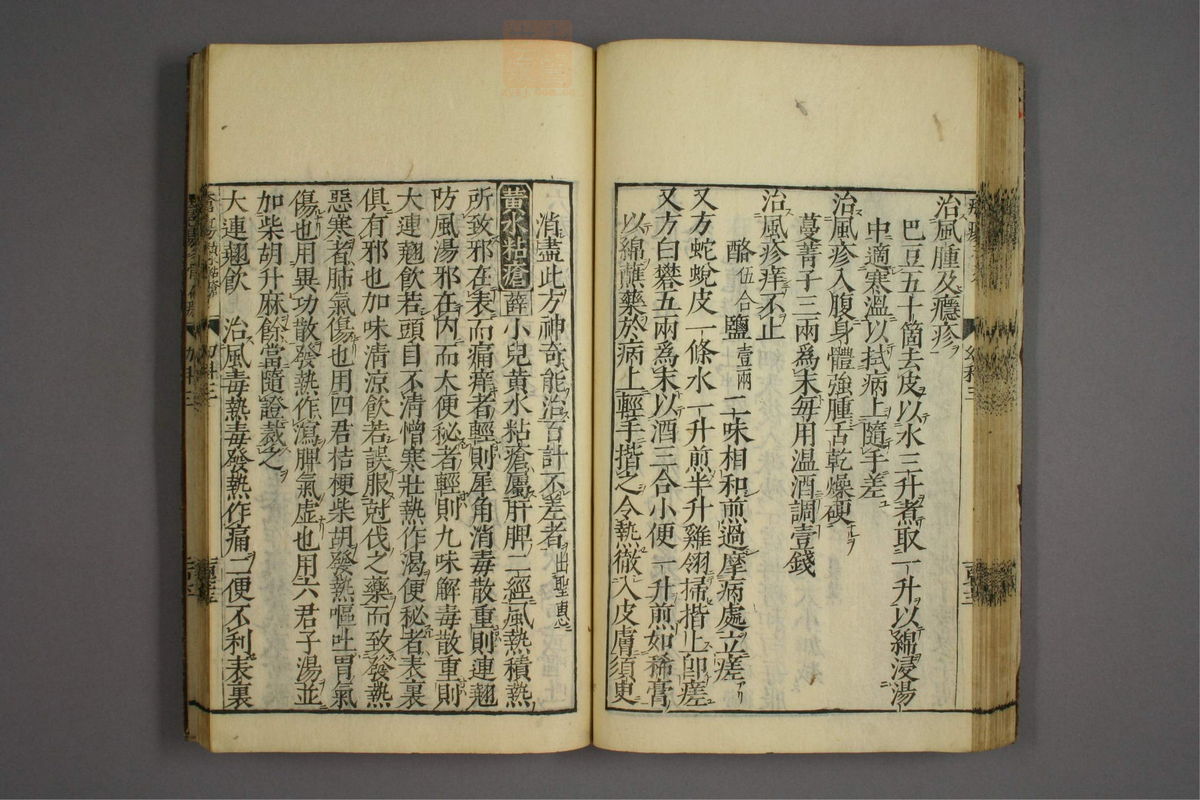 治風腫及癮疹
巴豆五十箇去皮以水三升煮取一升以綿浸湯
中適寒溫以拭病上隨手差
治風疹入腹身體強腫舌乾燥硬
蔓菁子三兩爲末毎用温酒調壹錢
治風疹痒不止
酪伍合鹽壹兩二味相和煎過摩病處立瘥
又方蛇蛻皮一條水一升煎半升雞翎掃揩上卽瘥
又方白礬五兩爲末以酒三合小便一升煎如稀膏
以綿蘸藥於病上輕手揩之令熱徹入皮膚須臾
消盡此方神奇能治百計不差者出聖惠
黄水粘瘡薛小兒黄水粘瘡屬肝脾二經風熱積熱
所致邪在表而痛痒者輕則犀角消毒散重則連翹
防風湯邪在内而大便秘者輕則九味解毒散重則
大連翹飲若頭自不清憎寒壯熱作渴便秘者表裏
俱有邪也加味清凉飲若誤服尅伐之藥而致發熱
惡寒者肺氣傷也用四君桔梗柴胡發熱嘔吐胃氣
傷也用異功散發熱作瀉脾氣虛也用六君子湯並
如柴胡升麻餘當隨證裁之
大連翹飲　治風毒熱毒發熱作痛二便不利表裏
幼科三